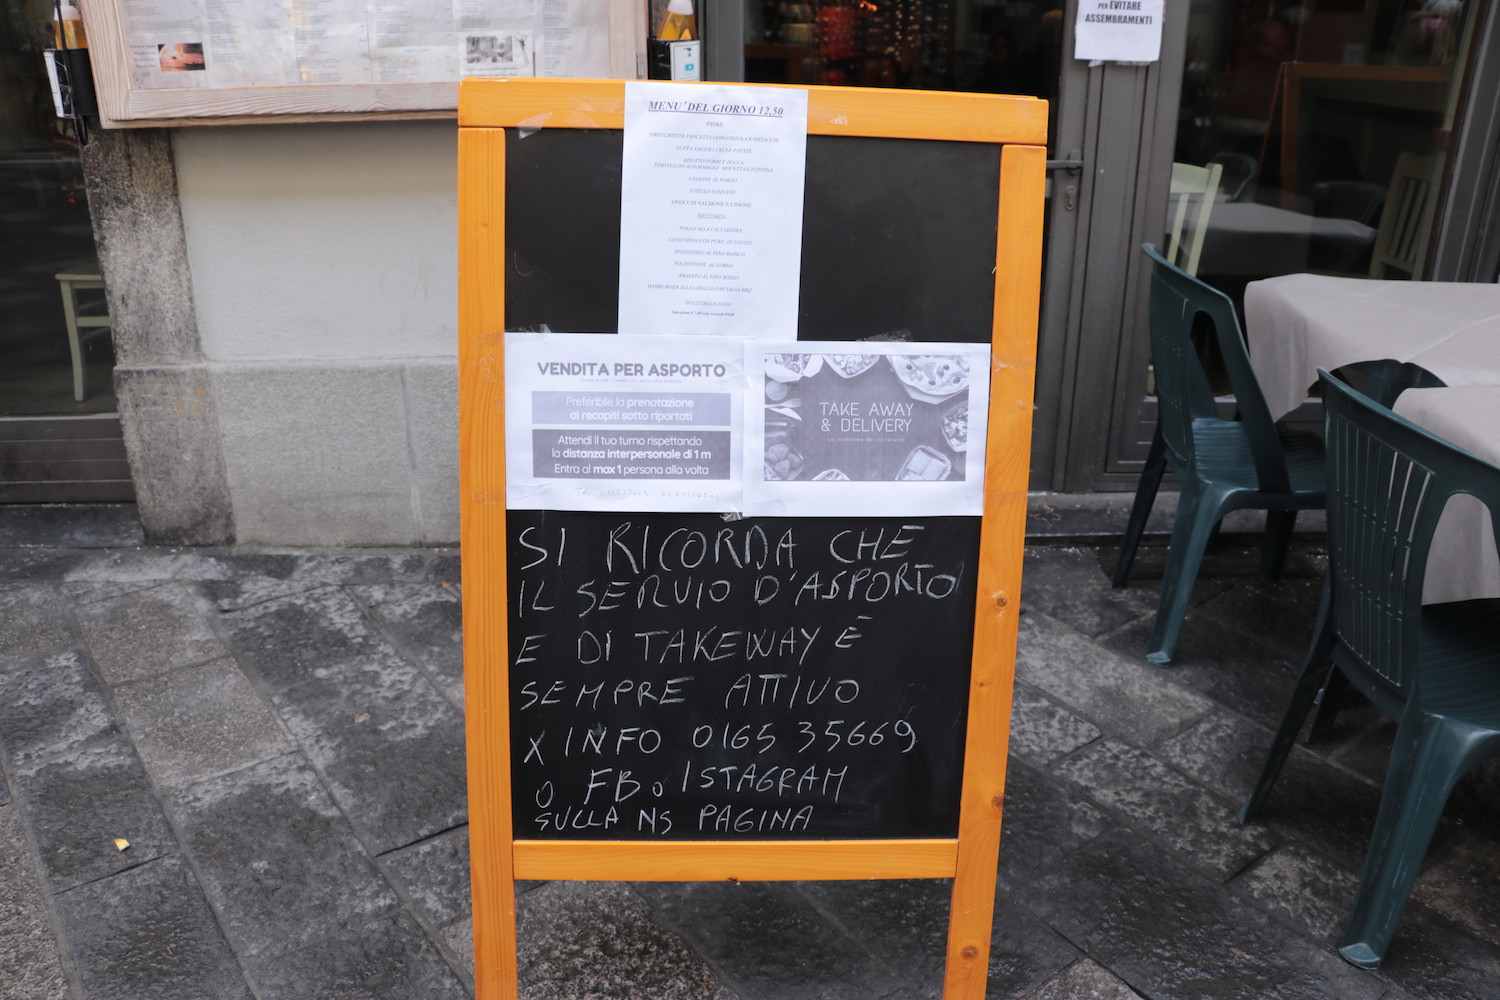 PER EVITARE
ASSEMBRAMENTI
MENU' DEL GIORNO 12,50
PRIMI:
ORECCHIETTE PANCETTA GORGONZOLA E PISTACCHI
ZUPPA FAGIOLI CELLE PATATE
RISOTTO PORRI E ZUCCA
TORTELLONI AI FORMAGGI MOCETTA E FONTINA
LASAGNE AL FORNO
VITELLO TONNATO
GNOCCHI SALMONE E LIMONE
SECONDI
POLLO ALLA CACCIATORA
COTECHINO CON PURE' DI PATATE
SPEZZATINO AL VINO BIANCO
POLPETTONE AL FORNO
BRASATO AL VINO ROSSO
HAMBURGER ALLA GRIGLIA O IN SALSA BBQ
DOLCI DELLA CASA
VENDITA PER ASPORTO
Preferibile la prenotazione
ai recapiti sotto riportati
Attendi il tuo turno rispettando
la distanza interpersonale di 1 m
Entra al max 1 persona alla volta
TAKE AWAY
& DELIVERY
SI RICORDA CHE
IL SERVIO D'ASPORTO
E DI TAKEWAY È
SEMPRE ATTIVO
X INFO 0165 35669
O FB o ISTAGRAM
SULLA NS PAGINA